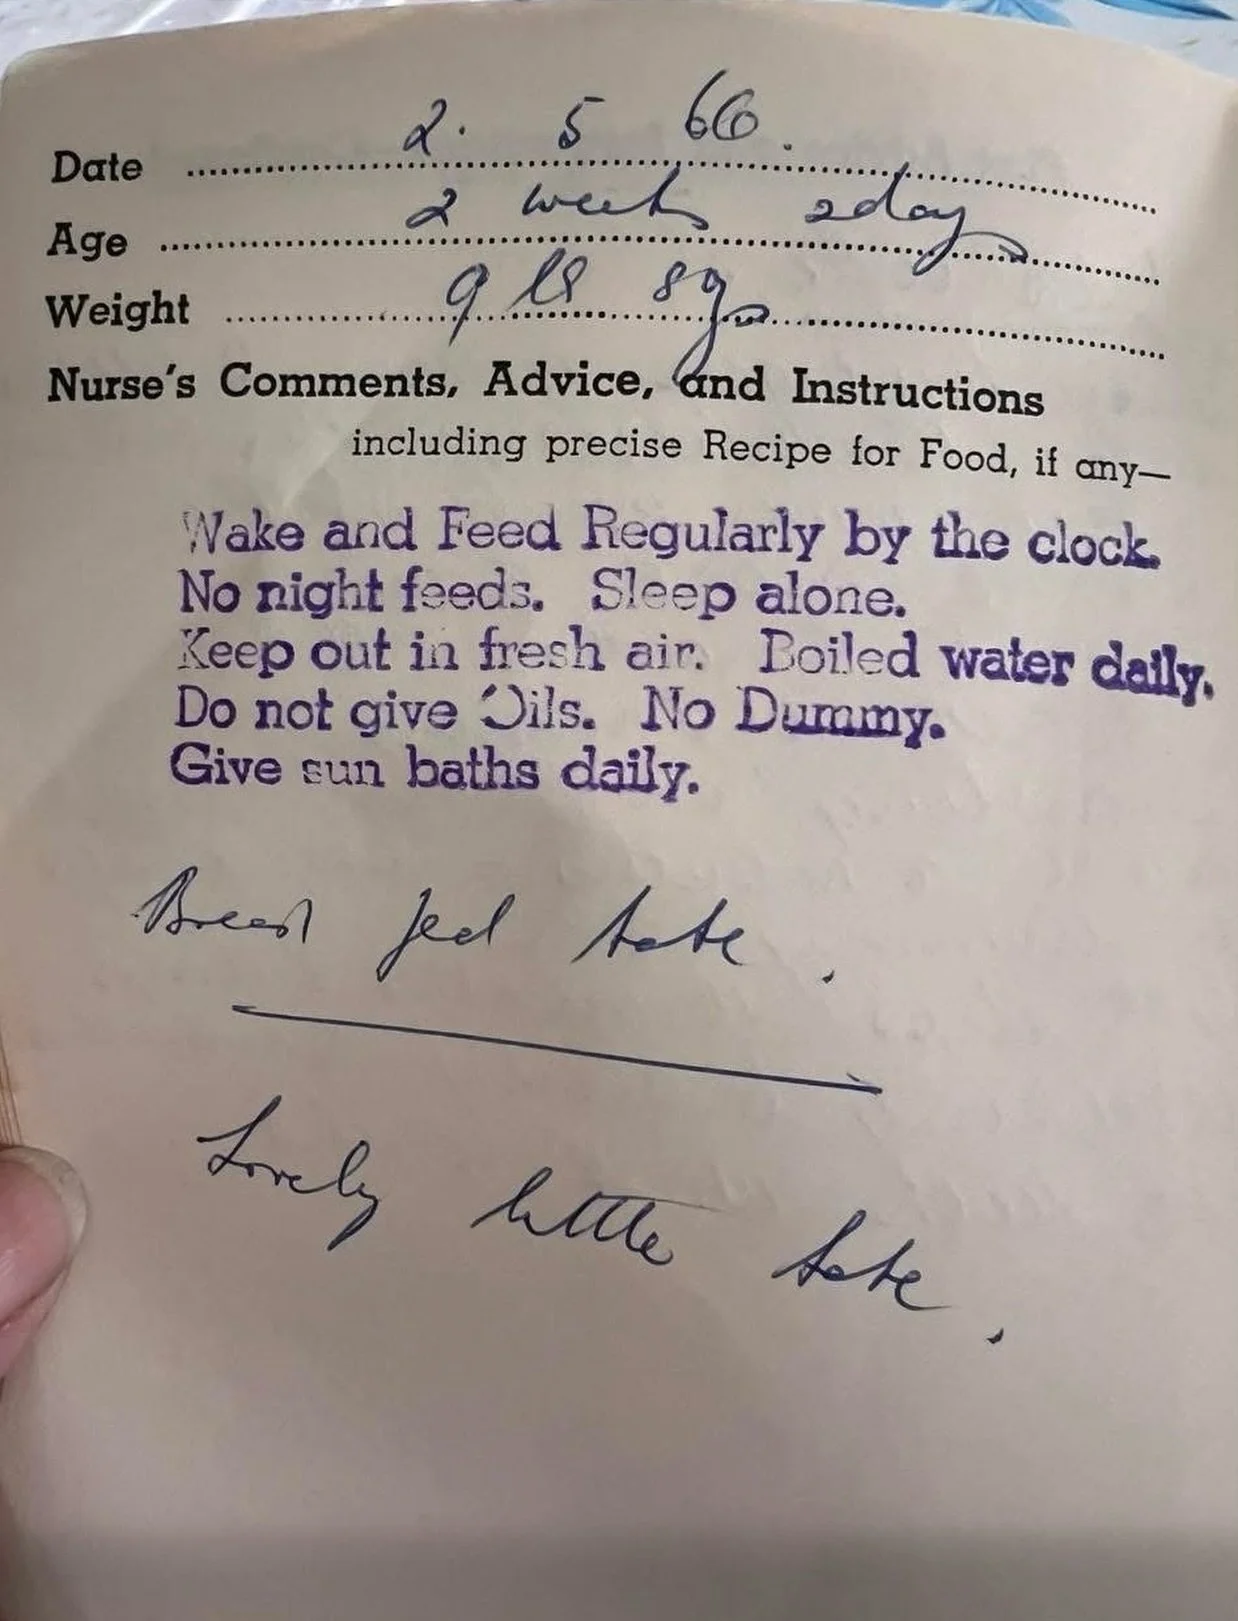 Date 2. 5 66.
Age 2 weeks 2days
Weight 9 lbs 8ozs
Nurse's Comments, Advice, and Instructions
including precise Recipe for Food, if any—
Wake and Feed Regularly by the clock.
No night feeds. Sleep alone.
Keep out in fresh air. Boiled water daily.
Do not give Oils. No Dummy.
Give sun baths daily.
Breast fed tote.
Lovely little tote.